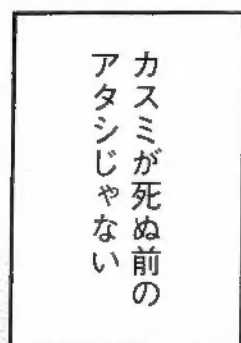 カスミが死ぬ前の
アタシじゃない